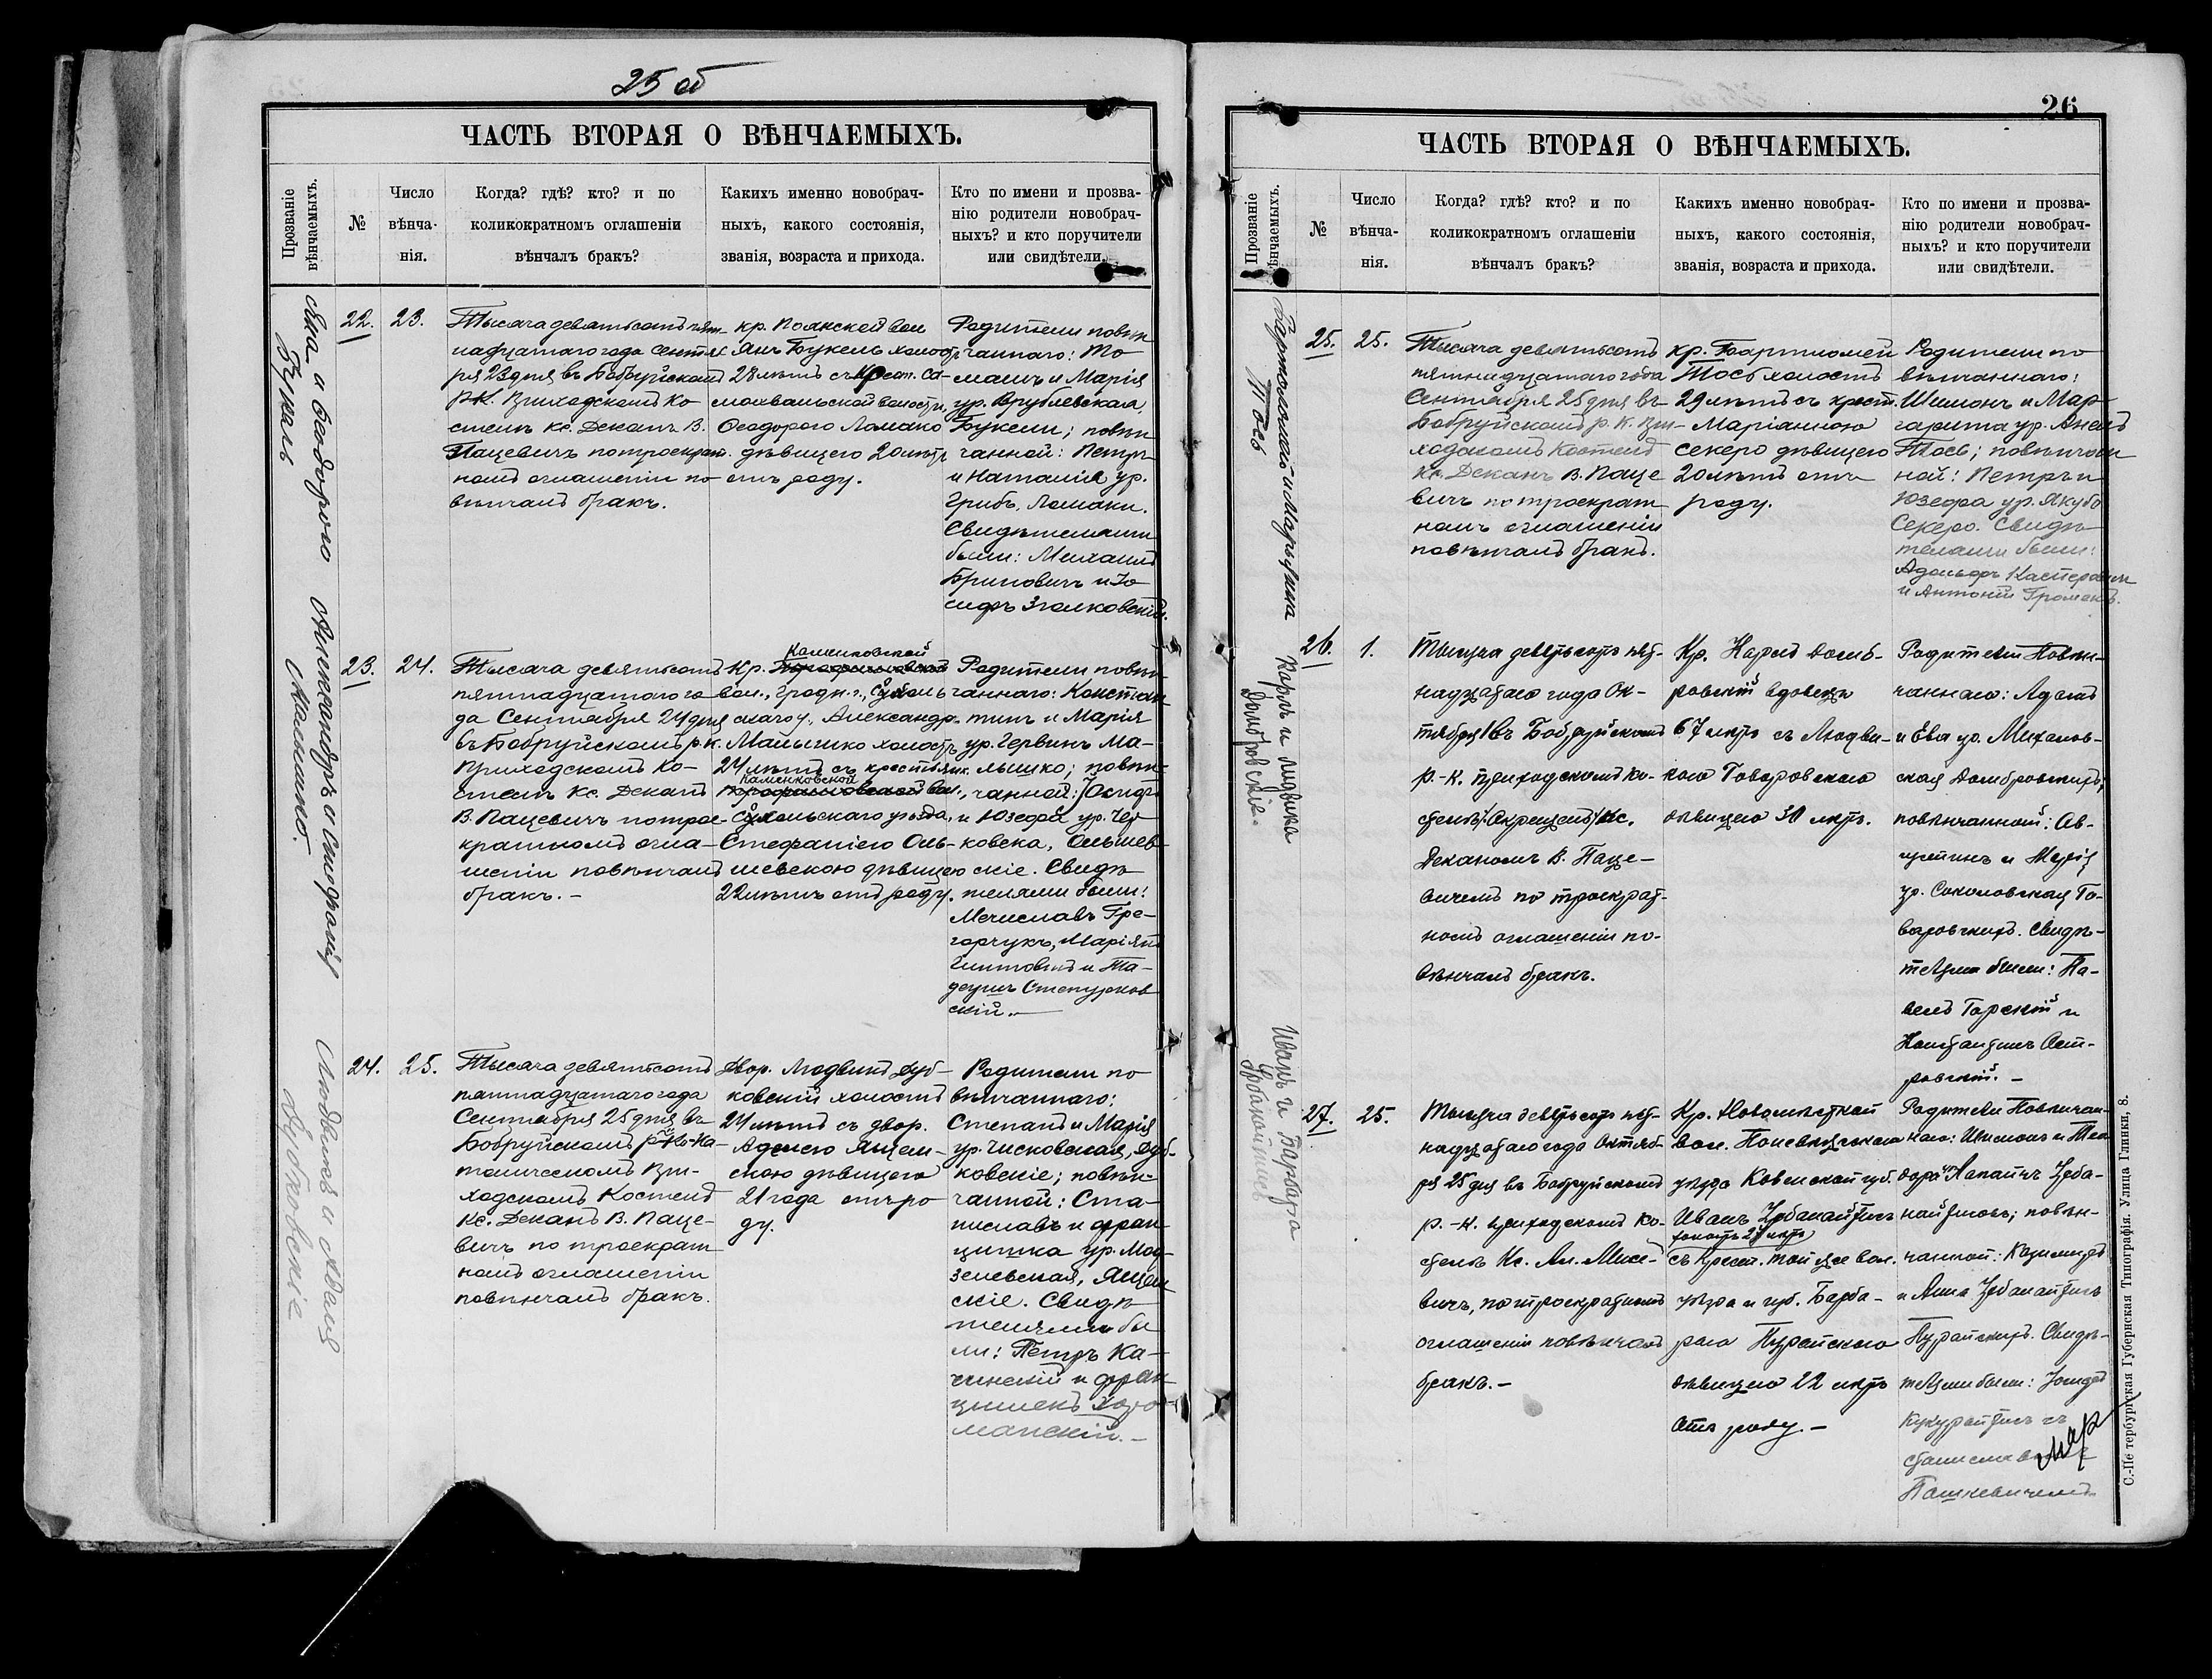 25 об
ЧАСТЬ ВТОРАЯ О ВѢНЧАЕМЫХЪ.
Прозваніе
вѣнчаемыхъ.
№
Число
вѣнча-
нія.
Когда? гдѣ? кто? и по
коликократномъ оглашеніи
вѣнчалъ бракъ?
Какихъ именно новобрач-
ныхъ, какого состоянія,
званія, возраста и прихода.
Кто по имени и прозва-
нію родители новобрач-
ныхъ? и кто поручители
или свидѣтели.
Яна и Ѳеодорою
Букель
22.
23.
Тысяча девятьсотъ пят-
надцатаго года Сентя
ря 23 дня въ Бобруйскомъ
р.к. приходскомъ ко
стелѣ кс. Деканъ В.
Пацевичъ по троекрат
номъ оглашеніи по
вѣнчалъ бракъ.
Янъ Букель холостъ
28 лѣтъ съ Крест. Са-
Ѳеодорою Ломако
дѣвицею 20 лѣтъ
отъ роду.
Родители повѣн
чаннаго: То
машъ и Марія
ур. Врублевская,
Букели; повѣн
чанной: Петръ
и Наталія ур.
Грибъ, Ломаки.
Свидѣтелями
были: Михаилъ
Бриповичъ и Іо
сифъ Зголковскій.
Александръ и Стефанія
Малышко.
23.
24.
Тысяча девятьсотъ
пятнадцатаго го
да Сентября 24 дня
въ Бобруйскомъ р.к.
приходскомъ ко-
стелѣ кс. Деканъ
В. Пацевичъ по трое-
кратномъ огла-
шеніи повѣнчалъ
бракъ. -
Каменковской
Кр.
вол., Гродн. г.,
скаго у., Александръ
Малышко холостъ
24 лѣтъ съ крестьянк.
Каменковской
вол.,
скаго уѣзда,
Стефаніею Оль-
шевскою дѣвицею
22 лѣтъ отъ роду.
Родители повѣн
чаннаго: Констан
тинъ и Марія
ур. Червинъ Ма-
лышко; повѣн-
чанной: Осифъ
и Юзефа ур. Чер
ковска, Ольшев-
скіе. Свидѣ
телями были:
Мечиславъ Гре-
горчукъ, Маріянъ
и Та-
деушъ Степурков
скій. -
Людвиковъ и Адели
Дубковскіе
24.
25.
Тысяча девятьсотъ
пятнадцатаго года
Сентября 25 дня въ
Бобруйскомъ р.-Ка-
толическомъ при-
ходскомъ Костелѣ
Кс. Деканъ В. Паце-
вичъ по троекрат
номъ оглашеніи
повѣнчалъ бракъ.
Двор. Людвикъ Дуб-
ковскій холостъ
24 лѣтъ съ двор.
Аделею Яцын-
скою дѣвицею
21 года отъ ро
ду.
Родители по
вѣнчаннаго:
Степанъ и Марія
ур. Чисковская, Дуб-
ковскіе; повѣн
чанной: Ста-
ниславъ и Фран
цишка ур. Мод-
зелевская, Яцын
скіе. Свидѣ
телями бы
ли: Петръ Ка-
чинскій и Фран
цишекъ Харо
манскій. -
26
ЧАСТЬ ВТОРАЯ О ВѢНЧАЕМЫХЪ.
Прозваніе
вѣнчаемыхъ.
№
Число
вѣнча-
нія.
Когда? гдѣ? кто? и по
коликократномъ оглашеніи
вѣнчалъ бракъ?
Какихъ именно новобрач-
ныхъ, какого состоянія,
званія, возраста и прихода.
Кто по имени и прозва-
нію родители новобрач-
ныхъ? и кто поручители
или свидѣтели.
Тось
25.
25.
Тысяча девятьсотъ
пятнадцатаго года
Сентября 25 дня въ
Бобруйскомъ р. К. при-
ходскомъ Костелѣ
Кс. Деканъ В. Паце
вичъ по троекрат
номъ оглашеніи
повѣнчалъ бракъ.
Кр. Бартломей
Тось холостъ
29 лѣтъ съ крест.
Маріанною
Секеро дѣвицею
20 лѣтъ отъ
роду.
Родители по
вѣнчаннаго:
Шимонъ и Мар-
гарита ур.
Тось; повѣнчан
ной: Петръ и
Юзефа ур. Якубо
Секеро. Свидѣ
телями были:
Адольфъ Касперович
и Антоній Громекъ.
Карлъ и Людвика
Домбровскіе.
26.
1.
Тысяча девятьсотъ пят-
надцатаго года Ок-
тября 1 въ Бобруйскомъ
р.-к. приходскомъ ко-
стелѣ Кс.
Деканомъ В. Паце-
вичемъ по троекрат-
номъ оглашеніи по-
вѣнчалъ бракъ.
Кр. Карлъ Домб-
ровскій вдовецъ
67 лѣтъ съ Людви-
кою Говоровскою
дѣвицею 30 лѣтъ.
Родители Повѣн-
чаннаго: Адамъ
и Ева ур. Михалов-
ская Домбровскихъ;
повѣнчанной: Ав-
густинъ и Марія
ур. Соколовская Го-
воровскихъ. Свидѣ-
телями были: Па-
велъ Горскій и
Константинъ Ост-
ровскій. -
Иванъ и Барбара
Урбанойтисъ
27.
25.
Тысяча девятьсотъ пят-
надцатаго года Октяб-
ря 25 дня въ Бобруйскомъ
р.-к. приходскомъ ко-
стелѣ Кс. Ал. Мисе-
вичъ, по троекратномъ
оглашеніи повѣнчалъ
бракъ. -
Кр. Новомѣсткой
вол. Поневѣжскаго
уѣзда Ковенской губ.
Иванъ Урбанайтисъ
холостъ 27 лѣтъ
съ Крест. той же вол.
уѣзда и губ. Барба-
рою Пурайскою
дѣвицею 22 лѣтъ
отъ роду. -
Родители Повѣнчан-
наго: Шимонъ и Тео
дора Лапатъ Урба-
найтисъ; повѣн-
чанной: Казимиръ
и Анна Урбанайтисъ
Пурайскихъ. Свидѣ-
телями были:
Кукурайтисъ съ
Пашкевичемъ
С.-Петербургская Губернская Типографія. Улица Глинки, 8.